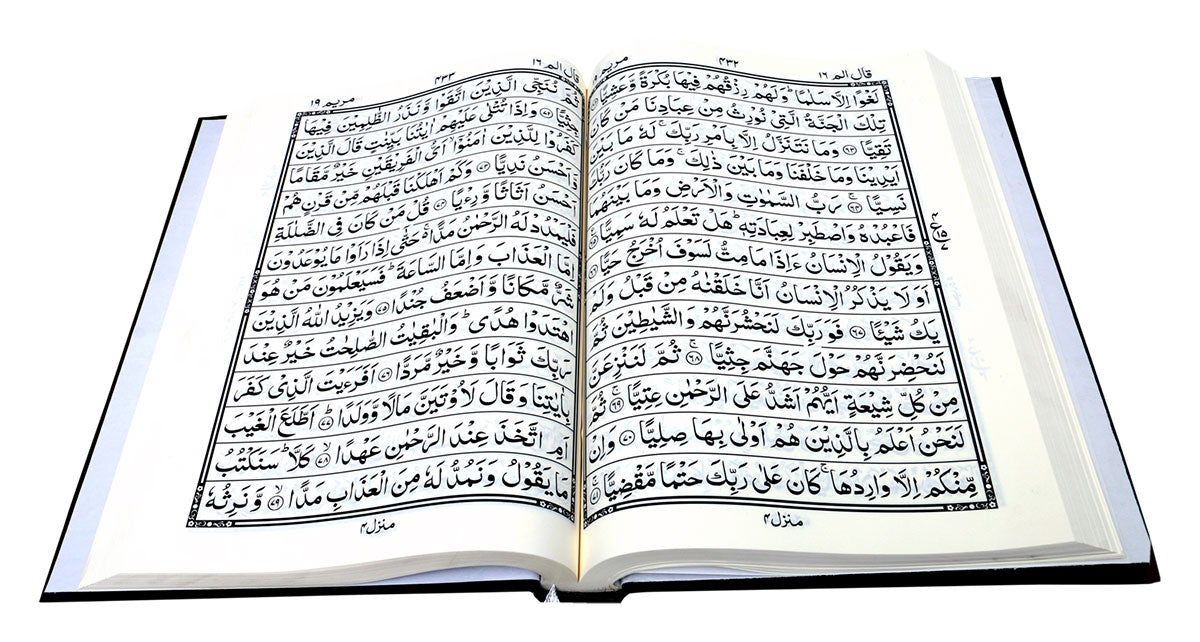 قال الم ١٦
٤٣٢
مريم
لَغْوًا اِلَّا سَلٰمًا ؕ وَلَهُمْ رِزْقُهُمْ فِيْهَا بُكْرَةً وَّعَشِيًّا
تِلْكَ الْجَنَّةُ الَّتِيْ نُوْرِثُ مِنْ عِبَادِنَا مَنْ كَانَ
تَقِيًّا ﴿٦٣﴾ وَمَا نَتَنَزَّلُ اِلَّا بِاَمْرِ رَبِّكَ ۚ لَهٗ مَا بَيْنَ
اَيْدِيْنَا وَمَا خَلْفَنَا وَمَا بَيْنَ ذٰلِكَ ۚ وَمَا كَانَ رَبُّكَ
نَسِيًّا ﴿٦٤﴾ رَبُّ السَّمٰوٰتِ وَالْاَرْضِ وَمَا بَيْنَهُمَا
فَاعْبُدْهُ وَاصْطَبِرْ لِعِبَادَتِهٖ ؕ هَلْ تَعْلَمُ لَهٗ سَمِيًّا ﴿٦٥﴾
وَيَقُوْلُ الْاِنْسَانُ ءَاِذَا مَا مِتُّ لَسَوْفَ اُخْرَجُ حَيًّا ﴿٦٦﴾
اَوَلَا يَذْكُرُ الْاِنْسَانُ اَنَّا خَلَقْنٰهُ مِنْ قَبْلُ وَلَمْ
يَكُ شَيْـًٔا ﴿٦٧﴾ فَوَرَبِّكَ لَنَحْشُرَنَّهُمْ وَالشَّيٰطِيْنَ ثُمَّ
لَنُحْضِرَنَّهُمْ حَوْلَ جَهَنَّمَ جِثِيًّا ﴿٦٨﴾ ثُمَّ لَنَنْزِعَنَّ
مِنْ كُلِّ شِيْعَةٍ اَيُّهُمْ اَشَدُّ عَلَى الرَّحْمٰنِ عِتِيًّا ﴿٦٩﴾ ثُمَّ
لَنَحْنُ اَعْلَمُ بِالَّذِيْنَ هُمْ اَوْلٰى بِهَا صِلِيًّا ﴿٧٠﴾ وَاِنْ
مِّنْكُمْ اِلَّا وَارِدُهَا ۚ كَانَ عَلٰى رَبِّكَ حَتْمًا مَّقْضِيًّا ﴿٧١﴾
منزل ٤
قال الم ١٦
٤٣٣
مريم ١٩
ثُمَّ نُنَجِّي الَّذِيْنَ اتَّقَوْا وَّنَذَرُ الظّٰلِمِيْنَ فِيْهَا
جِثِيًّا ﴿٧٢﴾ وَاِذَا تُتْلٰى عَلَيْهِمْ اٰيٰتُنَا بَيِّنٰتٍ قَالَ الَّذِيْنَ
كَفَرُوْا لِلَّذِيْنَ اٰمَنُوْۤا اَيُّ الْفَرِيْقَيْنِ خَيْرٌ مَّقَامًا
وَّاَحْسَنُ نَدِيًّا ﴿٧٣﴾ وَكَمْ اَهْلَكْنَا قَبْلَهُمْ مِّنْ قَرْنٍ هُمْ
اَحْسَنُ اَثَاثًا وَّرِءْيًا ﴿٧٤﴾ قُلْ مَنْ كَانَ فِى الضَّلٰلَةِ
فَلْيَمْدُدْ لَهُ الرَّحْمٰنُ مَدًّا ۚ حَتّٰۤى اِذَا رَاَوْا مَا يُوْعَدُوْنَ
اِمَّا الْعَذَابَ وَاِمَّا السَّاعَةَ ؕ فَسَيَعْلَمُوْنَ مَنْ هُوَ
شَرٌّ مَّكَانًا وَّاَضْعَفُ جُنْدًا ﴿٧٥﴾ وَيَزِيْدُ اللّٰهُ الَّذِيْنَ
اهْتَدَوْا هُدًى ؕ وَالْبٰقِيٰتُ الصّٰلِحٰتُ خَيْرٌ عِنْدَ
رَبِّكَ ثَوَابًا وَّخَيْرٌ مَّرَدًّا ﴿٧٦﴾ اَفَرَءَيْتَ الَّذِيْ كَفَرَ
بِاٰيٰتِنَا وَقَالَ لَاُوْتَيَنَّ مَالًا وَّوَلَدًا ﴿٧٧﴾ اَطَّلَعَ الْغَيْبَ
اَمِ اتَّخَذَ عِنْدَ الرَّحْمٰنِ عَهْدًا ﴿٧٨﴾ كَلَّا ؕ سَنَكْتُبُ
مَا يَقُوْلُ وَنَمُدُّ لَهٗ مِنَ الْعَذَابِ مَدًّا ﴿٧٩﴾ وَّنَرِثُهٗ
منزل ٤